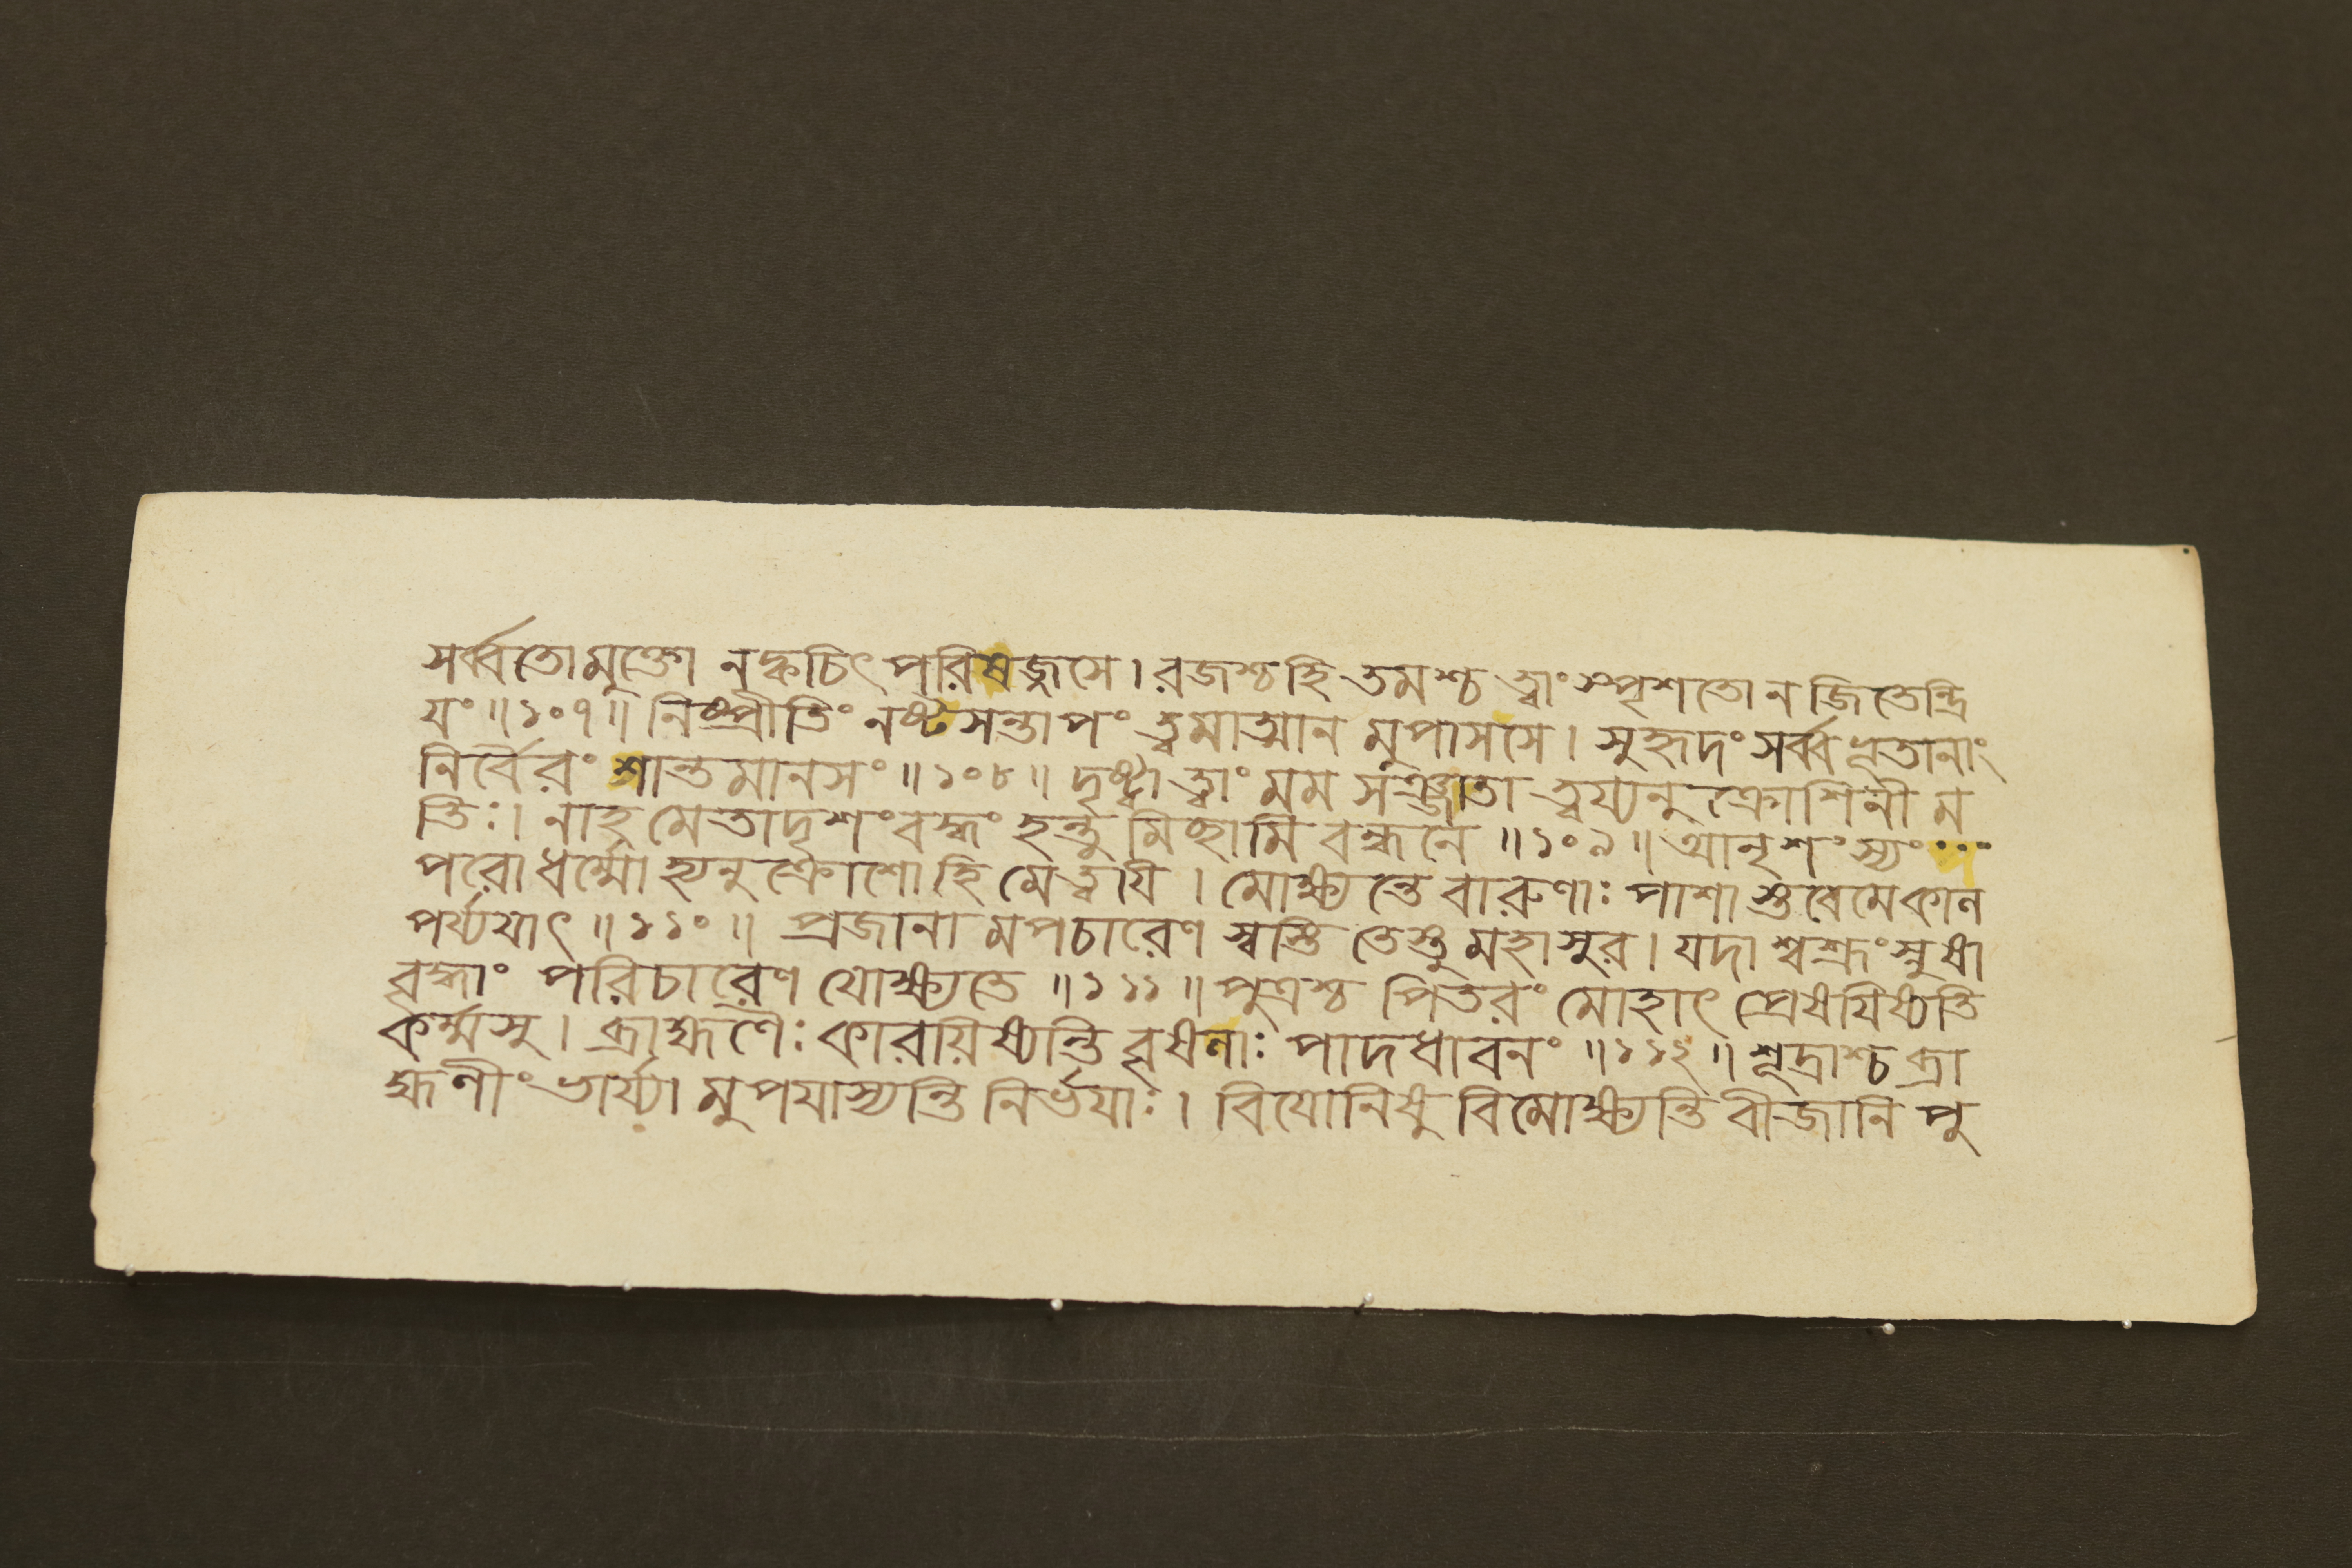 সর্ব্বতোমুক্তো নক্বচিৎ পরিষজ্জসে। রজশ্চহি তমশ্চ ত্বাং স্পৃশতোনজিতেন্দ্রি
যং॥১০৭॥ নিষ্প্রীতিং নষ্টসন্তাপং ত্বমাত্মান মুপাসসে। সুহৃদং সর্ব্বভূতানাং
নির্বৈরং শান্তমানসং॥১০৮॥ দৃষ্ট্বা ত্বাং মম সঞ্জাতা ত্বয্যনু ক্রোশিনী ম
তিঃ। নাহ মেতাদৃশংবদ্ধং হন্তু মিচ্ছামি বন্ধনে॥১০৯॥ আনৃশংস্যং
পরোধর্ম্মো হ্যনুক্রোশোহি মেত্বযি। মোক্ষ্যন্তে বারুণাঃ পাশা স্তবেমেকাল
পর্য্যযাৎ॥১১০॥ প্রজানা মপচারেণ স্বস্তি তেস্তুমহাসুর। যদা শ্বশ্রূংস্নুষা
বৃদ্ধাং পরিচারেণ যোক্ষ্যতে॥১১১॥ পুত্রশ্চ পিতরং মোহাৎ প্রেষযিষ্যতি
কর্ম্মসু। ব্রাহ্মণৈঃ কারযিষ্যন্তি বৃষলাঃ পাদধাবনং॥১১২॥ শূদ্রাশ্চ ব্রা
হ্মণীং ভার্য্যা মুপযাস্যন্তি নির্ভযাঃ। বিযোনিষু বিমোক্ষ্যন্তি বীজানি পু